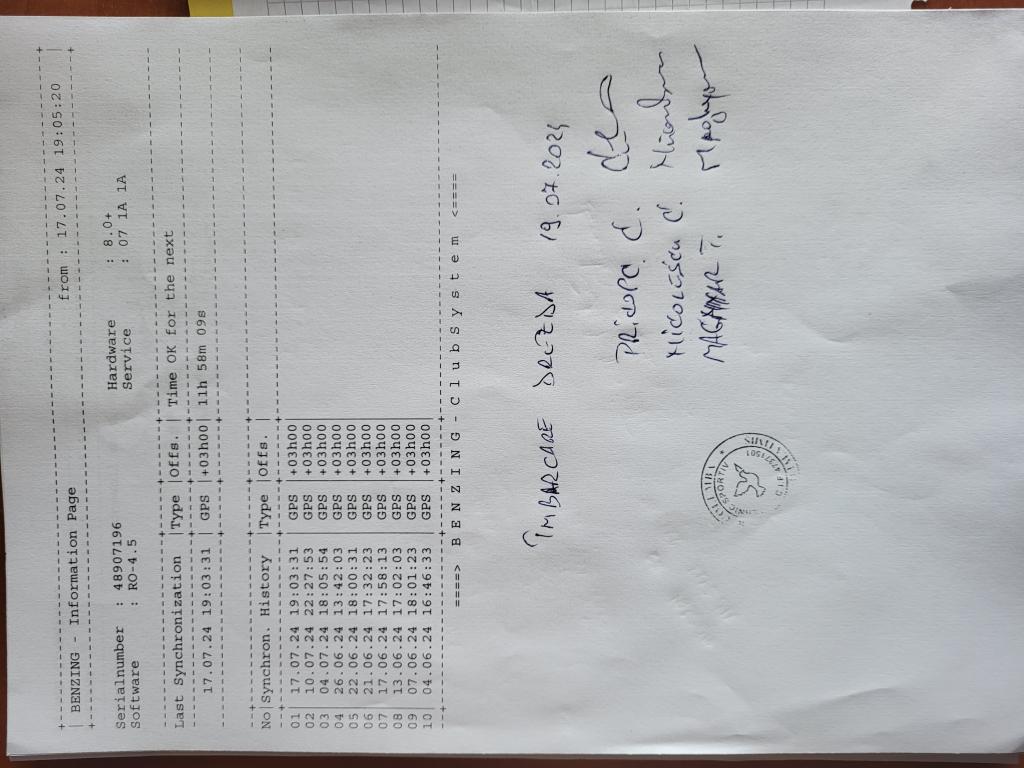 BENZING - Information Page from : 17.07.24 19:05:20
Serialnumber : 48907196 Hardware : 8.0+
Software : RO-4.5 Service : 07 1A 1A
Last Synchronization |Type |Offs. | Time OK for the next
17.07.24 19:03:31 | GPS |+03h00| 11h 58m 09s
No|Synchron. History |Type |Offs. |
01 | 17.07.24 19:03:31 | GPS |+03h00
02 | 10.07.24 22:27:53 | GPS |+03h00
03 | 04.07.24 18:05:54 | GPS |+03h00
04 | 26.06.24 13:42:03 | GPS |+03h00
05 | 22.06.24 18:00:31 | GPS |+03h00
06 | 21.06.24 17:32:23 | GPS |+03h00
07 | 17.06.24 17:58:13 | GPS |+03h00
08 | 13.06.24 17:02:03 | GPS |+03h00
09 | 07.06.24 18:01:23 | GPS |+03h00
10 | 04.06.24 16:46:33 | GPS |+03h00
====> B E N Z I N G - C l u b S y s t e m <====
ÎMBARCARE DREZDA 19.07.2024
PRICOPE C.
NICOLESCU C.
T.
SPORTIV
C.I.F.